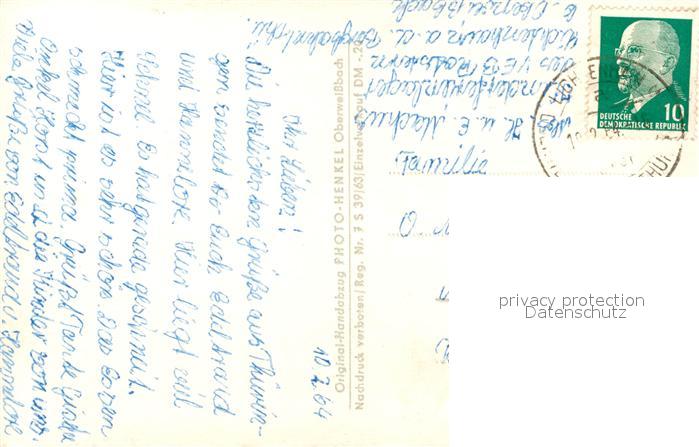 10.2.64
Ihr Lieben!
Die herzlichsten Grüße aus Thürin-
gen sendet Euch Edeltraud
und Hannelore. Hier liegt viel
Schnee. Es hat gerade geschneit.
Hier ist es sehr schön. Das Essen
schmeckt prima. Grüßt Tante
Onkel Horst und die Kinder von uns.
Viele Grüße von Edeltraud u. Hannelore
Original-Handabzug PHOTO-HENKEL Oberweißbach
Nachdruck verboten/Reg. Nr. 7 S 39/63/Einzelverkauf DM -.20
Kinderferienlager
des VEB
Lichtenhain a. d.
Bergbahn
b. Oberweißbach
Familie
DEUTSCHE
DEMOKRATISCHE REPUBLIK
10
privacy protection
Datenschutz